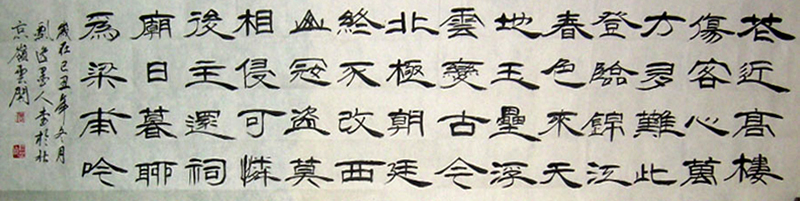 花近高樓
傷客心萬
方多難此
登臨錦江
春色來天
地玉壘浮
雲變古今
北極朝廷
終不改西
山寇盜莫
相侵可憐
後主還祠
廟日暮聊
為梁甫吟
歲在己丑年冬月
人書於北
京嶺雲閣